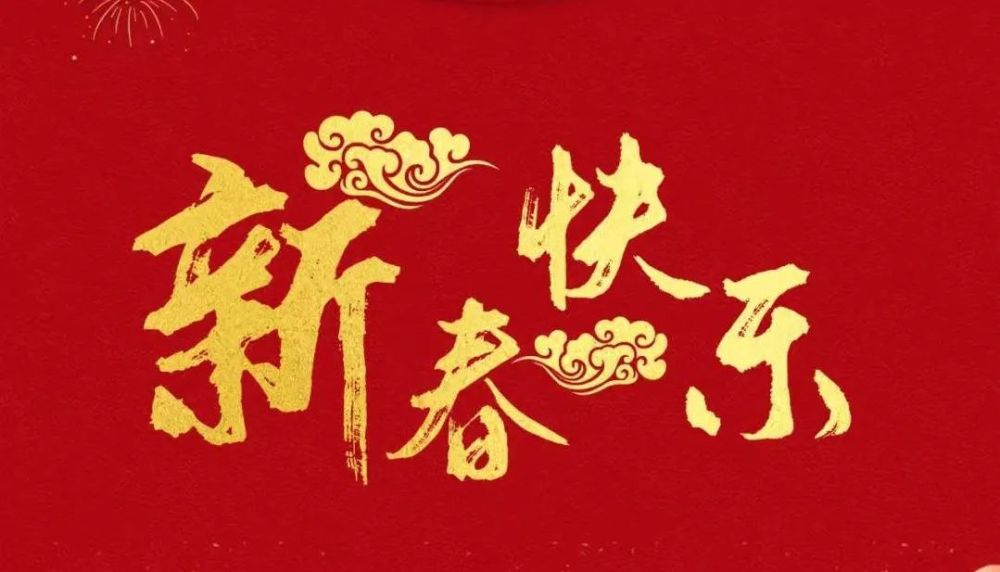 新春快乐